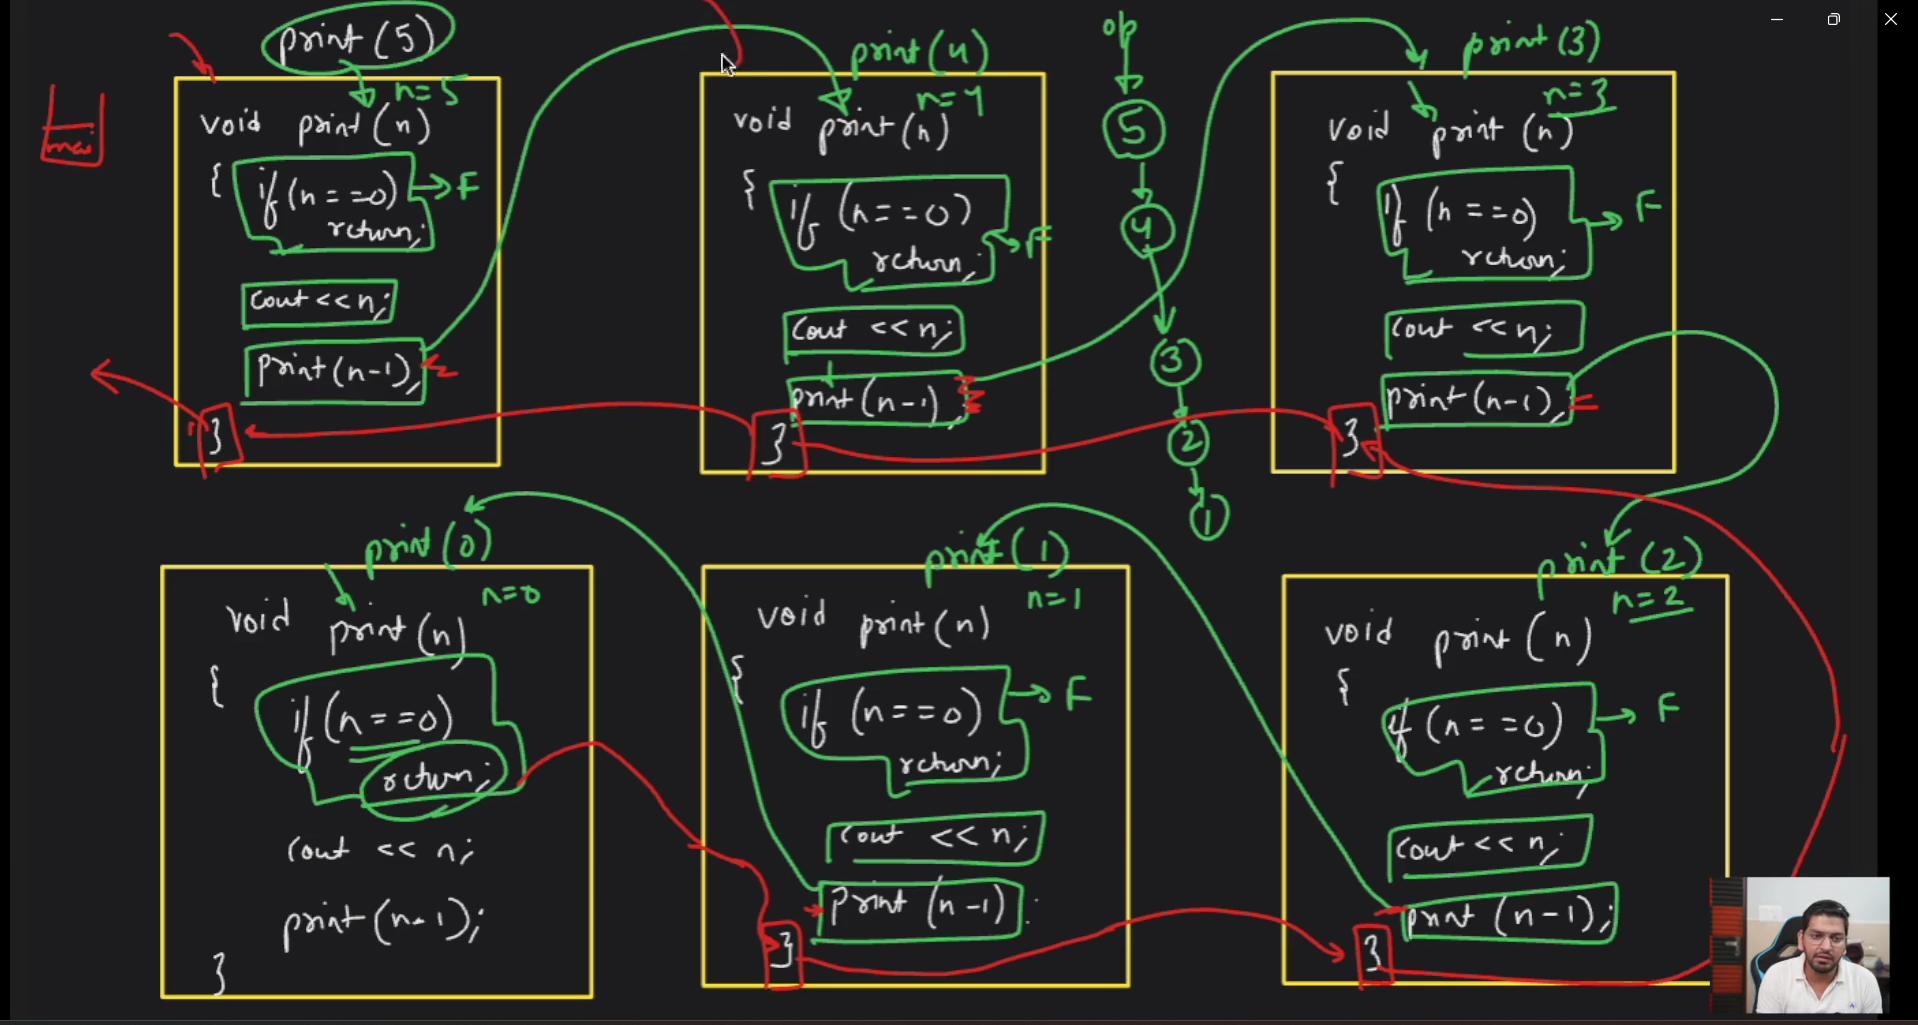 print (5)
n=5
void print (n)
{ if (n==0) → F
return;
cout <<n;
print (n-1);
}
print (4)
n=4
void print (n)
{ if (n==0)
return; → F
cout <<n;
print (n-1);
}
op
5
4
3
2
1
print (3)
n=3
void print (n)
{ if (n==0) → F
return;
cout <<n;
print (n-1);
}
print (0)
n=0
void print (n)
{
if (n==0)
return;
cout << n;
print (n-1);
}
print (1)
n=1
void print (n)
{
if (n==0) → F
return;
cout << n;
print (n-1);
}
print (2)
n=2
void print (n)
{
if (n==0) → F
return;
cout << n;
print (n-1);
}